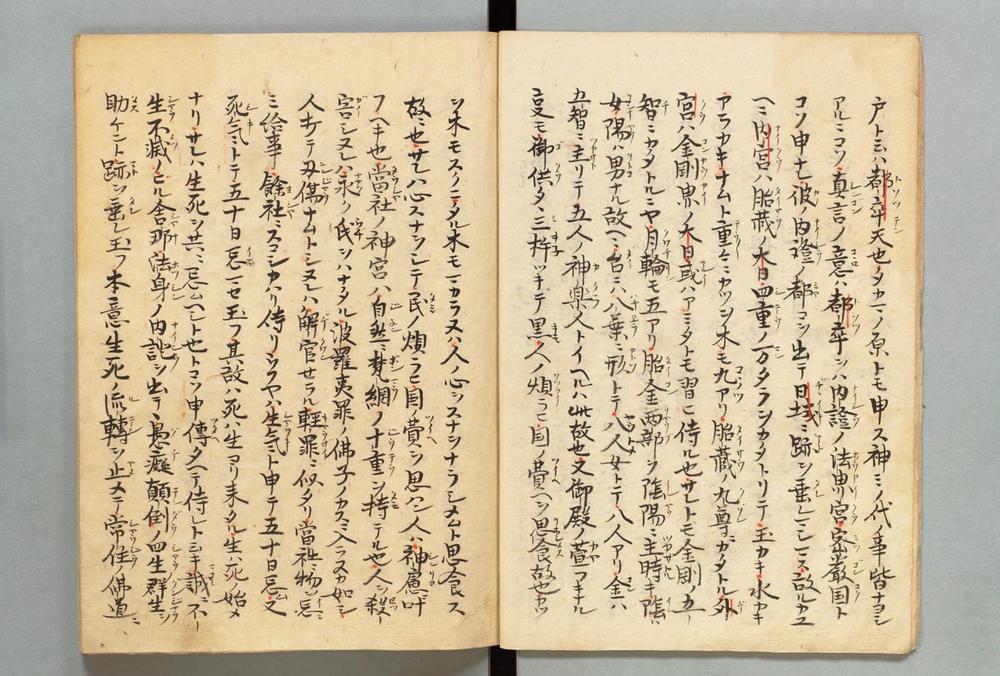 戸ト云ハ都卒天也タカマノ原トモ申ス神ミノ代ノ事皆ナヨシ
アルニコソ真言ノ意ハ都卒ヲハ内證ノ法界宮密厳国ト
コソ申ナレ彼ノ内證ノ都コヲ出テ日域ニ跡ヲ垂レマシマス故ルカユ
ヘニ内宮ハ胎蔵ノ大日四重ノ万タラヲカタトリテ玉カキ水カキ
アラカキナムト重々ニカツヲ木モ九アリ胎蔵ノ九尊ニカタトル外
宮ハ金剛界ノ大日或ハアミタトモ習ヒ侍ル也サレトモ金剛ノ五
智ニカタトルニヤ月輪モ五アリ胎金両部ヲ陰陽ニ主時キ陰ハ
女陽ハ男ナル故ヘニ台ニハ八葉ニ形トテ八人女トテ八人アリ金ハ
五智ニ主リテ五人ノ神楽人トイヘルハ此故也又御殿ノ萱フキナル
支モ御供タヽ三杵ツキテ黒ハ人ノ煩ラヒ国ノ費ヘヲ思食故也カツ
ヲ木モスクニタル木モマカラヌハ人ノ心ヲスナヲナラシメムト思食ス
故ニ也サレハ心スナヲシテ民ノ煩ラヒ国ノ費ヲ思ハン人ハ神慮ニ叶
フヘキ也當社ノ神宮ハ自然ニ梵網ノ十重ヲ持テル也人ヲ殺
害シヌレハ永ク氏ヲハナタル波羅夷罪ノ佛子ノカスニ入ラヌカ如シ
人ヲ打テ刃傷ナムトシヌレハ解官セラル軽罪ニ似タリ當社ニ物ヲ忌
ミ給事餘社ニスコシカハリ侍リウフヤハ生気ト申テ五十日忌又
死気ミトテ五十日忌マセ玉フ其故ハ死ハ生ヨリ来タル生ハ死ノ始メ
ナリサレハ生死ヲ共ニ忌ムヘシト也トコソ申傳タヘテ侍レト云キ誠ニ不
生不滅ノビル舎那法身ノ内証ヲ出テ愚癡顛倒ノ四生群生ヲ
助ケント跡ヲ垂レ玉フ本意生死ノ流轉ヲ止メテ常住ノ佛道ニ